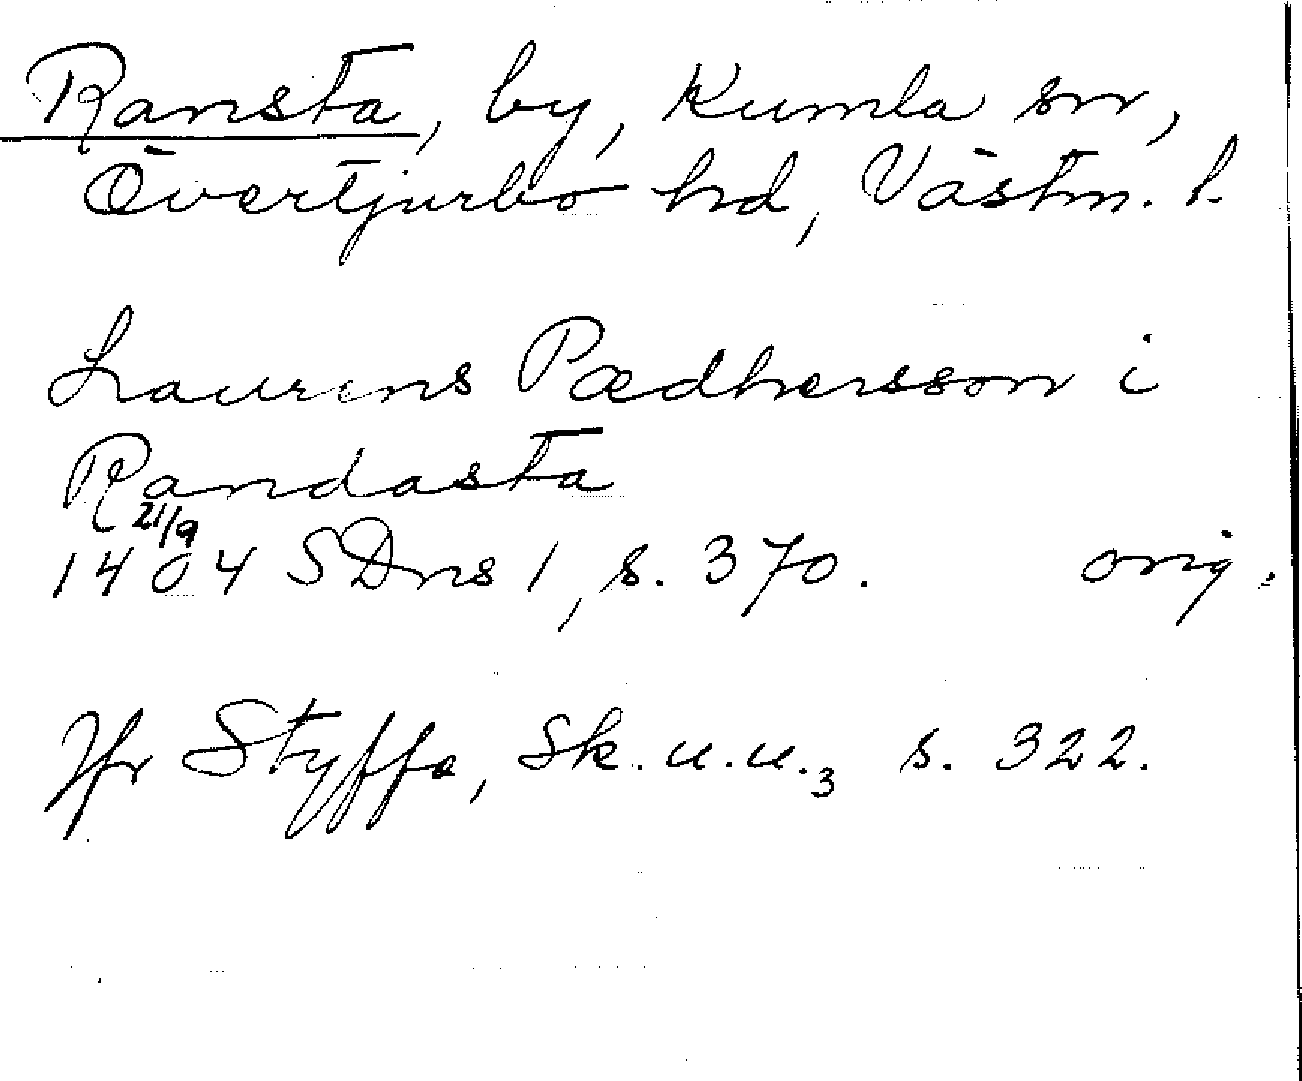 Ransta, by, Kumla sn,
Övertjurbo hd, Västm. l.
Laurens Pædhersson i
Randasta
21/9
1404 SDns 1, s. 370. orig.
Jfr Styffe, Sk. u. u. 3 s. 322.